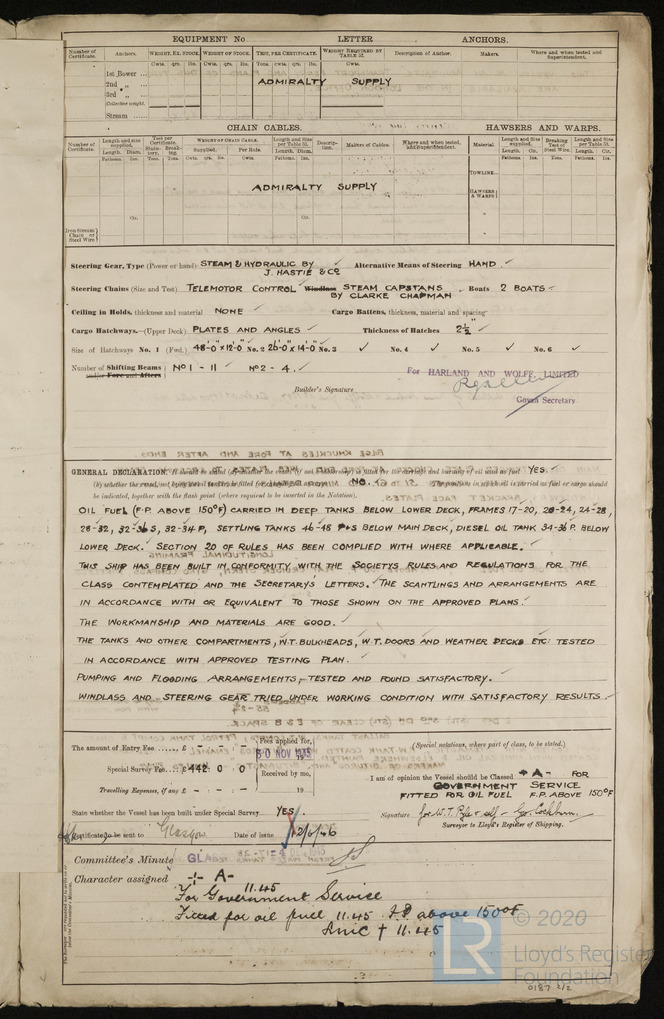 EQUIPMENT No. LETTER ANCHORS.
Number of Certificate. Anchors. WEIGHT, EX. STOCK. WEIGHT OF STOCK. TEST, PER CERTIFICATE. WEIGHT REQUIRED BY TABLE 53. Description of Anchor. Makers. Where and when tested and Superintendent.
Cwts. qrs. lbs. Cwts. qrs. lbs. Tons. Cwts. qrs. lbs. Cwts.
1st Bower ...
2nd „ ...
3rd „ ...
Collective weight.
Stream ...
ADMIRALTY SUPPLY
CHAIN CABLES. HAWSERS AND WARPS.
Number of Certificate. Length and size supplied. Test per Certificate. WEIGHT OF CHAIN CABLE. Length and Size per Table 53. Description. Makers of Cables. Where and when tested, and Superintendent. Material. Length and Size supplied. Breaking Test of Steel Wire. Length and Size per Table 53.
Length. Diam. Supplied. Per Rule. Length. Diam. Length. Cir. Length. Cir.
Fathoms. Ins. Tons. Tons. Cwts. qrs. lbs. Cwts. Fathoms. Ins. Fathoms. Ins. Tons. Fathoms. Ins.
TOWLINE
HAWSERS & WARPS
ADMIRALTY SUPPLY
Cir. Cir.
Iron Stream Chain or Steel Wire
Steering Gear, Type (Power or hand) STEAM & HYDRAULIC BY J. HASTIE & CO ✓ Alternative Means of Steering HAND. ✓
Steering Chains (Size and Test) TELEMOTOR CONTROL ✓ Windlass STEAM CAPSTANS BY CLARKE CHAPMAN Boats 2 BOATS ✓
Ceiling in Holds, thickness and material NONE ✓ Cargo Battens, thickness, material and spacing
Cargo Hatchways.—(Upper Deck) PLATES AND ANGLES ✓ Thickness of Hatches 2½" ✓
Size of Hatchways No. 1 (Fwd.) 48'-0" x 12'-0" No. 2 26'-0" x 14'-0" No. 3 ✓ No. 4 ✓ No. 5 ✓ No. 6 ✓
Number of Shifting Beams and/or Fore and Afters No 1 - 11 ✓ No 2 - 4. ✓
For HARLAND AND WOLFF, LIMITED
Builder's Signature
Govan Secretary
GENERAL DECLARATION. YES. ✓
NO.
be indicated, together with the flash point (where required to be inserted in the Notation).
OIL FUEL (F.P. ABOVE 150°F) CARRIED IN DEEP TANKS BELOW LOWER DECK, FRAMES 17-20, 20-24, 24-28,
28-32, 32-36 S, 32-34 P, SETTLING TANKS 46-48 P&S BELOW MAIN DECK, DIESEL OIL TANK 34-36 P. BELOW
LOWER DECK. SECTION 20 OF RULES HAS BEEN COMPLIED WITH WHERE APPLICABLE.
THIS SHIP HAS BEEN BUILT IN CONFORMITY WITH THE SOCIETYS RULES AND REGULATIONS FOR THE
CLASS CONTEMPLATED AND THE SECRETARY'S LETTERS. THE SCANTLINGS AND ARRANGEMENTS ARE
IN ACCORDANCE WITH OR EQUIVALENT TO THOSE SHOWN ON THE APPROVED PLANS.
THE WORKMANSHIP AND MATERIALS ARE GOOD.
THE TANKS AND OTHER COMPARTMENTS, W.T. BULKHEADS, W.T. DOORS AND WEATHER DECKS ETC: TESTED
IN ACCORDANCE WITH APPROVED TESTING PLAN.
PUMPING AND FLOODING ARRANGEMENTS, TESTED AND FOUND SATISFACTORY.
WINDLASS AND STEERING GEAR TRIED UNDER WORKING CONDITION WITH SATISFACTORY RESULTS.
The amount of Entry Fee ... £ - : - : - Fees applied for, (Special notations, where part of class, to be stated.)
30 NOV 1945
Special Survey Fee ... £ 442 : 0 : 0 Received by me, I am of opinion the Vessel should be Classed ✠ A- FOR
GOVERNMENT SERVICE
Travelling Expenses, if any £ - : - : - 19 FITTED FOR OIL FUEL F.P. ABOVE 150°F
State whether the Vessel has been built under Special Survey YES. Signature for W.T. Pyle & self - Geo. Cockburn.
Surveyor to Lloyd's Register of Shipping.
Certificate to be sent to Glasgow Date of issue 12/6/46
Committee's Minute GLA
Character assigned ✠ A-
11.45
For Government Service
Fitted for oil fuel 11.45 F.P. above 150°F
LMC ✠ 11.45
© 2020
LR
Lloyd's Register
Foundation
0187 2/2